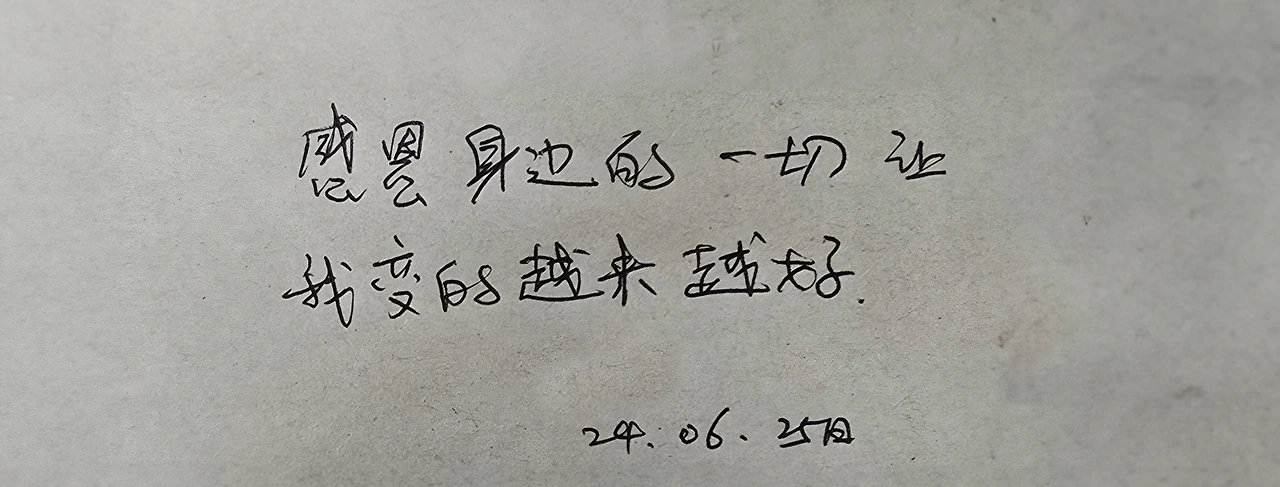 感恩身边的一切让
我变的越来越好.
24.06.25日